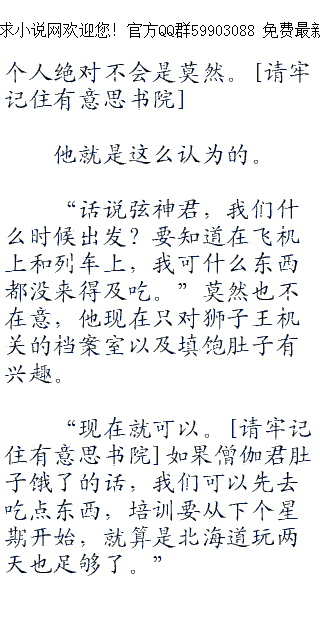 求小说网欢迎您! 官方QQ群59903088 免费最新
个人绝对不会是莫然。[请牢
记住有意思书院]
他就是这么认为的。
“话说弦神君，我们什
么时候出发？要知道在飞机
上和列车上，我可什么东西
都没来得及吃。”莫然也不
在意，他现在只对狮子王机
关的档案室以及填饱肚子有
兴趣。
“现在就可以。[请牢记
住有意思书院]如果僧伽君肚
子饿了的话，我们可以先去
吃点东西，培训要从下个星
期开始，就算是北海道玩两
天也足够了。”